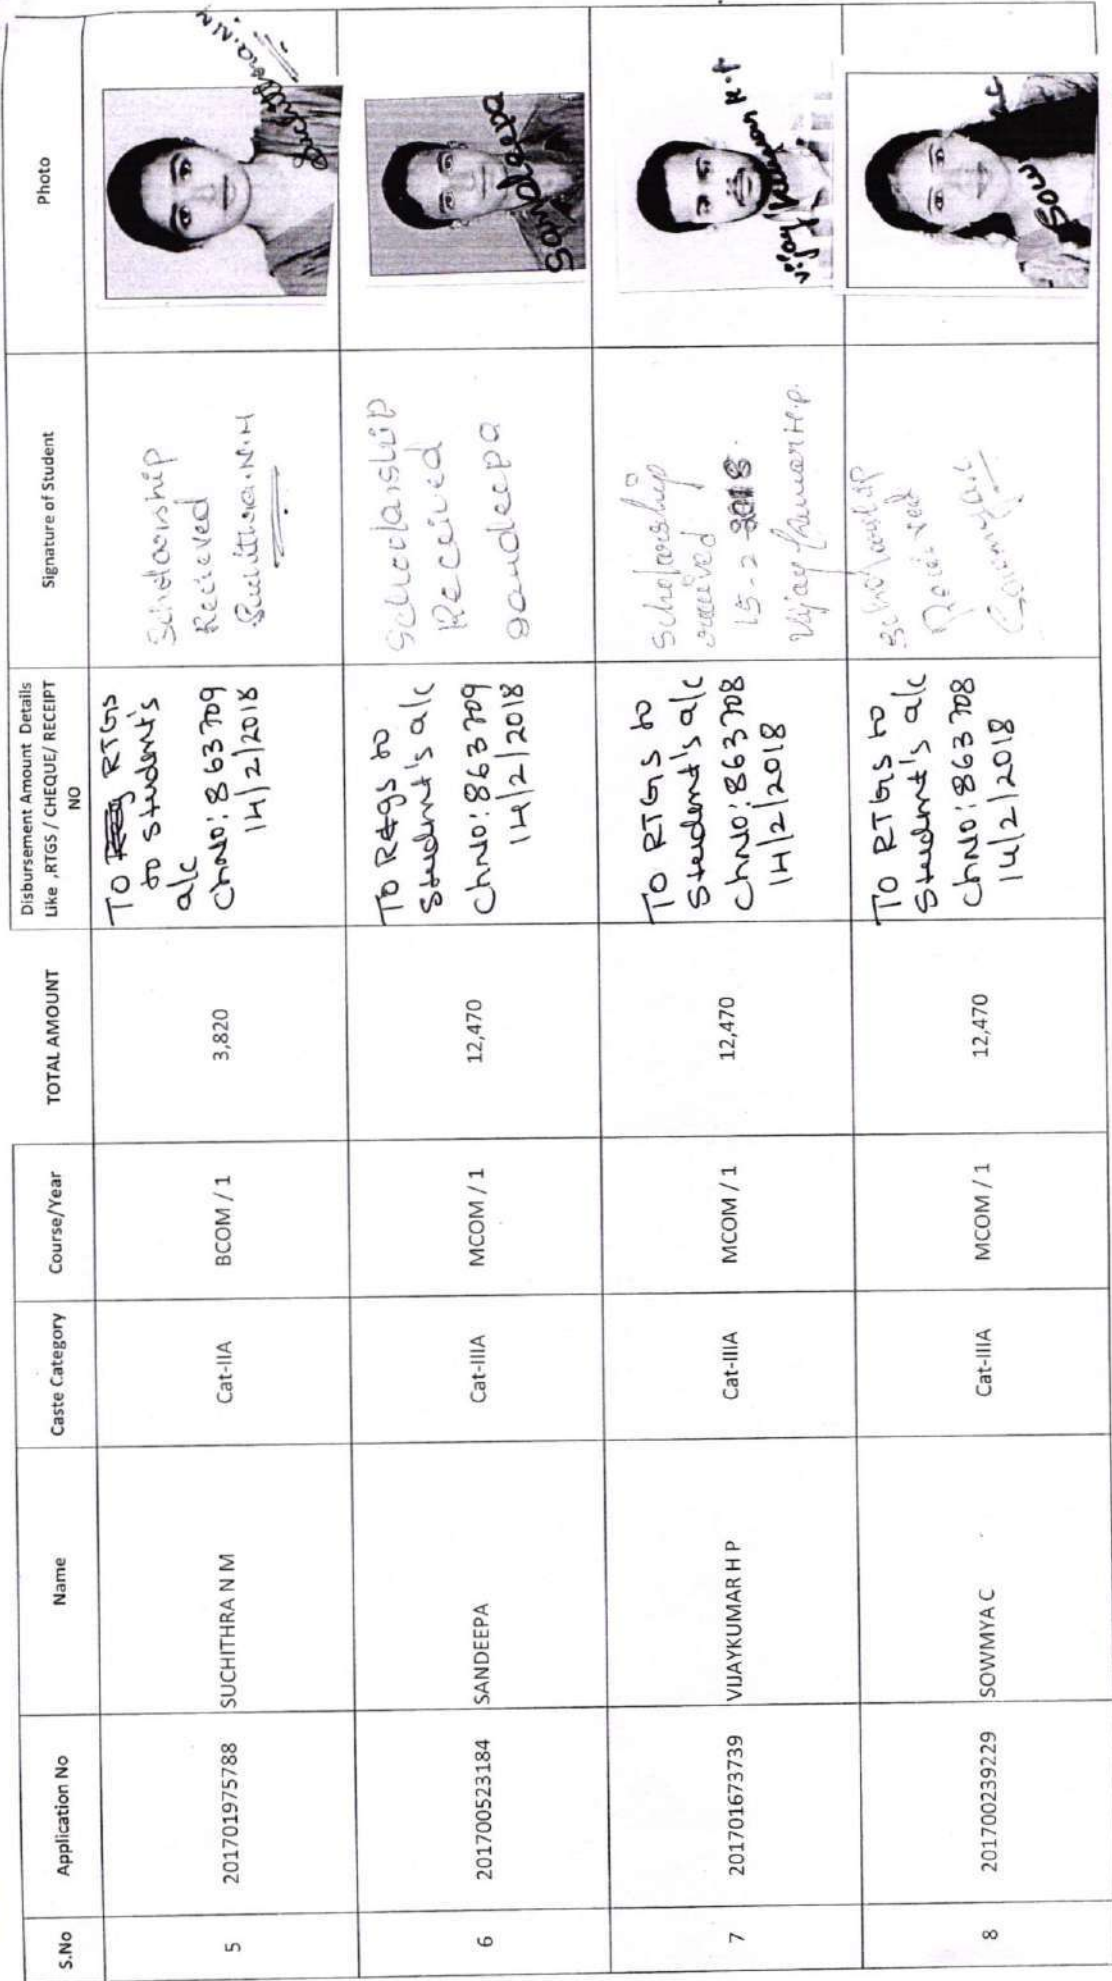 S.No
Application No
Name
Caste Category
Course/Year
TOTAL AMOUNT
Disbursement Amount Details
Like ,RTGS / CHEQUE/ RECEIPT
NO
Signature of Student
Photo
5
201701975788
SUCHITHRA N M
Cat-IIA
BCOM / 1
3,820
To RTGS
to student's
a/c
Chno: 863709
14/2/2018
Scholarship
Recieved
Suchithra.N.M
Suchithra.N.M
6
201700523184
SANDEEPA
Cat-IIIA
MCOM / 1
12,470
To Rtgs to
Student's a/c
Chno: 863709
14/2/2018
Scholarship
Received
Sandeepa
Sandeepa
7
201701673739
VIJAYKUMAR H P
Cat-IIIA
MCOM / 1
12,470
To RTGS to
Student's a/c
Chno: 863708
14/2/2018
Scholarship
received
15-2-2018.
Vijay Kumar H.P.
Vijay Kumar H.P
8
201700239229
SOWMYA C
Cat-IIIA
MCOM / 1
12,470
To RTGS to
Student's a/c
Chno: 863708
14/2/2018
Scholarship
Received
Sowmya.c
Sow